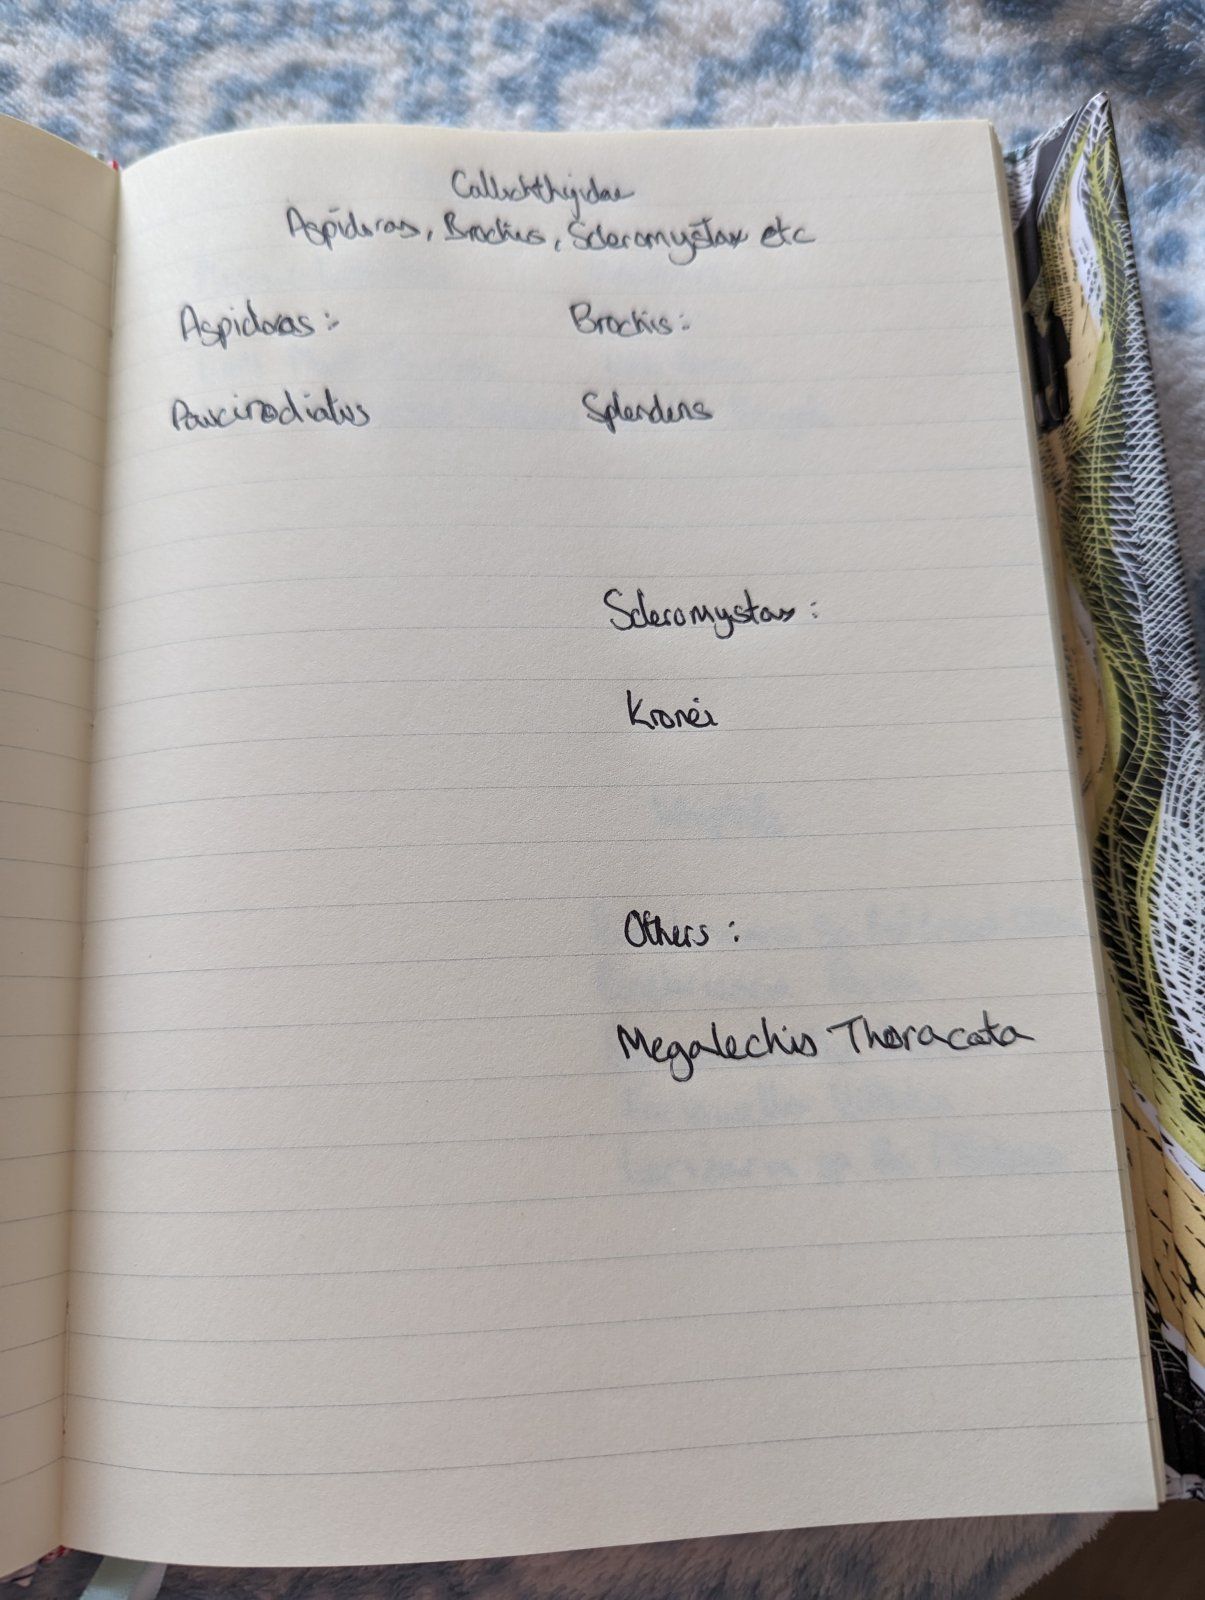 Callichthyidae
Aspidoras, Brochis, Scleromystax etc
Aspidoras :-
Brochis :
Paucirodiatus
Splendens
Scleromystax :
Kronei
Others :
Megalechis Thoracata